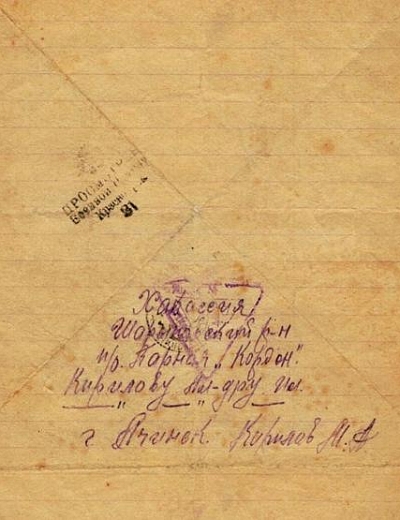 Просмотрено
Военной Цензурой
81
Хакассия
Шарыповский р-н
п/о. Парная „Кордон".
Кирилову Ал-дру Ил.
г Ачинск Кирилов М. А